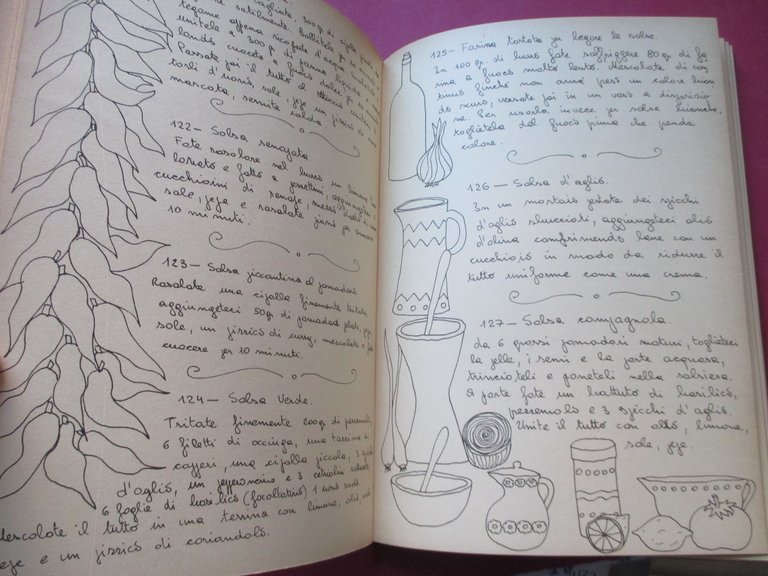 cagliate, 300 gr di cipolla
sottilmente, bollitele in
tegame appena ricoperte d'acqua
unitele a 300 gr di panna liquida e
lando cuocete a fuoco dolce per
Passate poi il tutto al setaccio, unitevi 2
torli d'uovo, sale, pepe un pizzico di noce
moscata, servite calda.
122 — Salsa senapata
Fate rosolare nel burro un limone
lavato e fatto a pezzettini, aggiungete 2
cucchiaini di senape, mezzo
sale, pepe e rosolate poi per ancora
10 minuti.
123 — Salsa piccantina al pomodoro
Rosolate una cipolla finemente tritata,
aggiungeteci 50 gr di pomodori pelati, pepe,
sale, un pizzico di curry, mescolate e fate
cuocere per 10 minuti.
124 — Salsa Verde.
Tritate finemente 200 gr di prezzemolo,
6 filetti di acciuga, una tazzina di
capperi, una cipolla piccola, 3 spicchi
d'aglio, un peperoncino e 3 cetriolini sottaceto
6 foglie di basilico (facoltativo) 1 uovo sodo.
Mescolate il tutto in una terrina con limone, olio, sale
pepe e un pizzico di coriandolo.
125 — Farina tostata per legare le salse.
In 100 gr. di burro fate soffriggere 80 gr di fa
rina a fuoco molto lento. Mescolate di con
tinuo finché non avrà preso un colore bion
do scuro, versate poi in un vaso a disposizio
ne. Per usarla invece per salse bianche,
toglietela dal fuoco prima che prenda
colore.
126 — Salsa d'aglio.
In un mortaio pestate dei spicchi
d'aglio sbucciati, aggiungeteci olio
d'oliva comprimendo bene con un
cucchiaio in modo da ridurre il
tutto uniforme come una crema.
127 — Salsa campagnola.
da 6 grossi pomodori maturi, toglieteci
la pelle, i semi e la parte acquosa,
trinciateli e poneteli nella salsiera.
A parte fate un battuto di basilico,
prezzemolo e 3 spicchi d'aglio.
Unite il tutto con olio, limone,
sale, pepe.